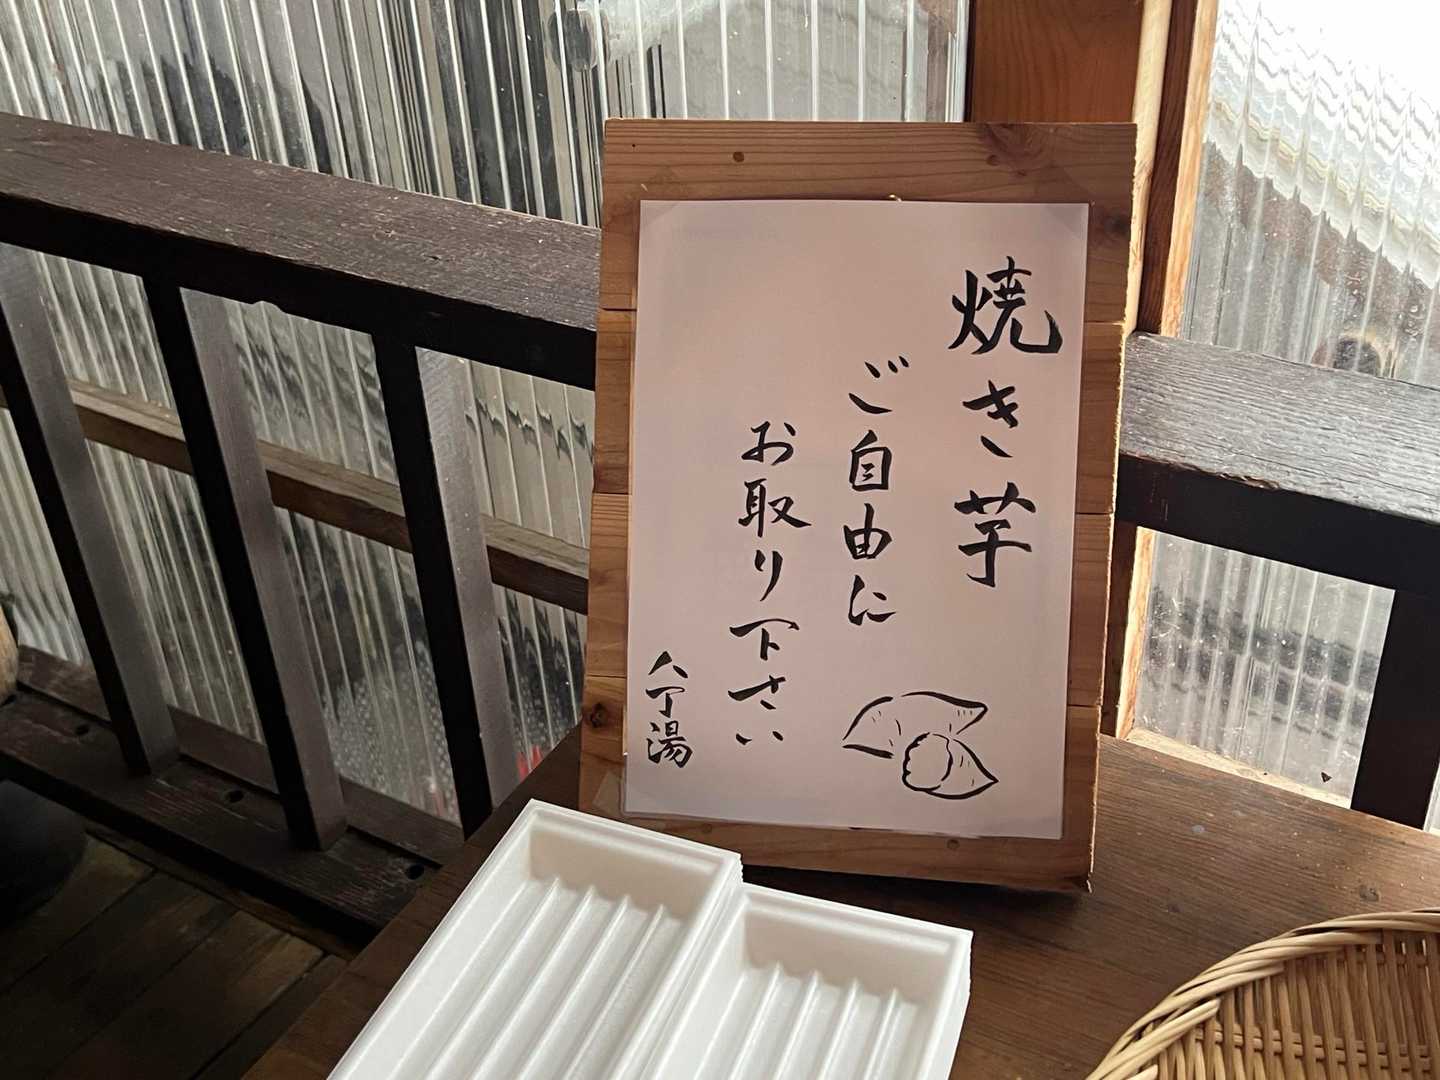 焼き芋
ご自由に
お取り下さい
八丁湯